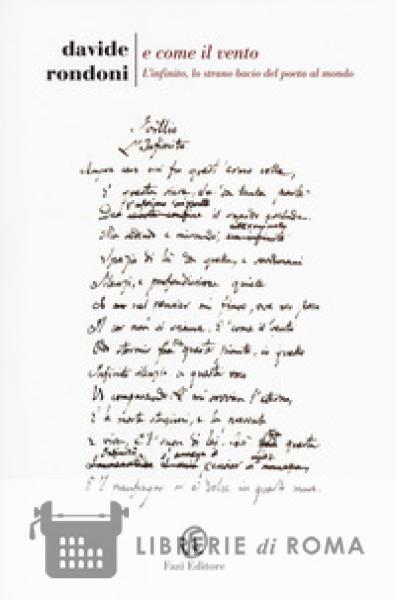 davide rondoni
e come il vento
L'infinito, lo strano bacio del poeta al mondo
Idillio
L'Infinito
Sempre caro mi fu quest'ermo colle,
E questa siepe, che da tanta parte
il guardo esclude.
Ma sedendo e mirando,
Spazio di là da quella, e sovrumani
Silenzi, e profondissima quiete
Io nel pensier mi fingo, ove per poco
Il cor non si spaura. E come il vento
Odo stormir fra queste piante, io quello
Infinito silenzio a questa voce
Vo comparando: E mi sovvien l'eterno,
E le morte stagioni, e la presente
E viva, e 'l suon di lei. Così questa
E 'l naufragar m'è dolce in questo mare.
LIBRERIE di ROMA
Fazi Editore